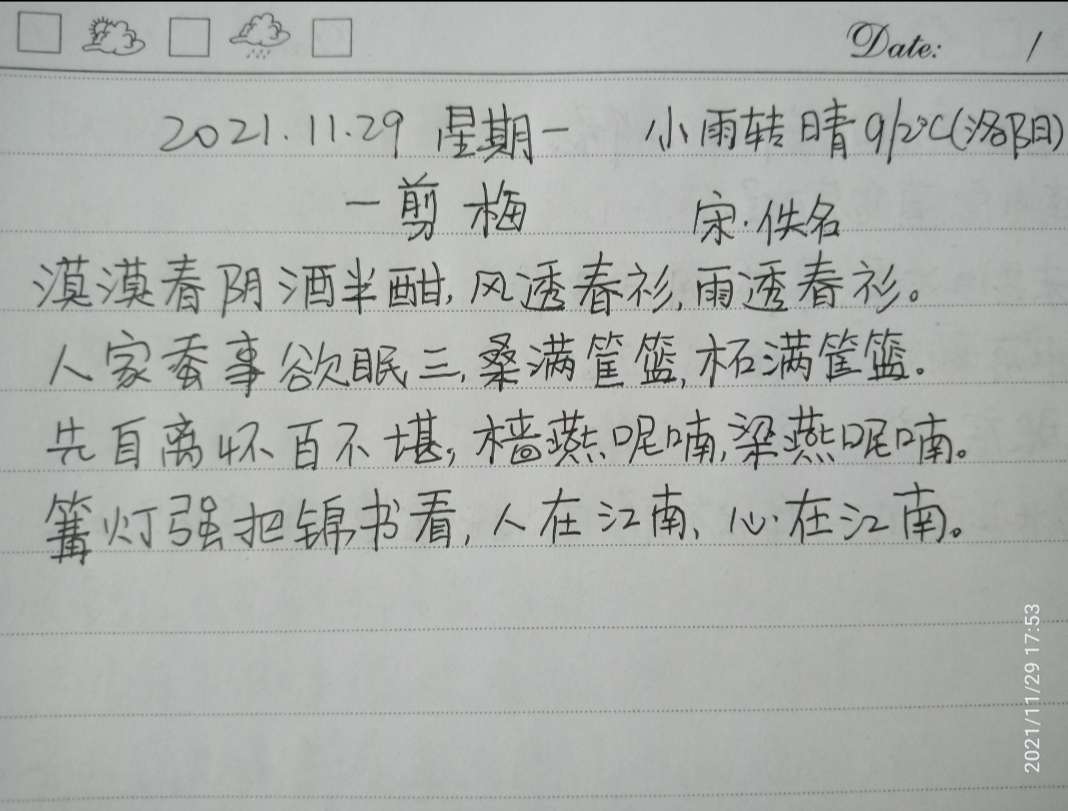 Date: /
2021.11.29 星期一 小雨转晴 9/2℃(洛阳)
一剪梅 宋·佚名
漠漠春阴酒半酣,风透春衫,雨透春衫。
人家蚕事欲眠三,桑满筐篮,柘满筐篮。
先自离怀百不堪,樯燕呢喃,梁燕呢喃。
篝灯强把锦书看,人在江南,心在江南。
2021/11/29 17:53